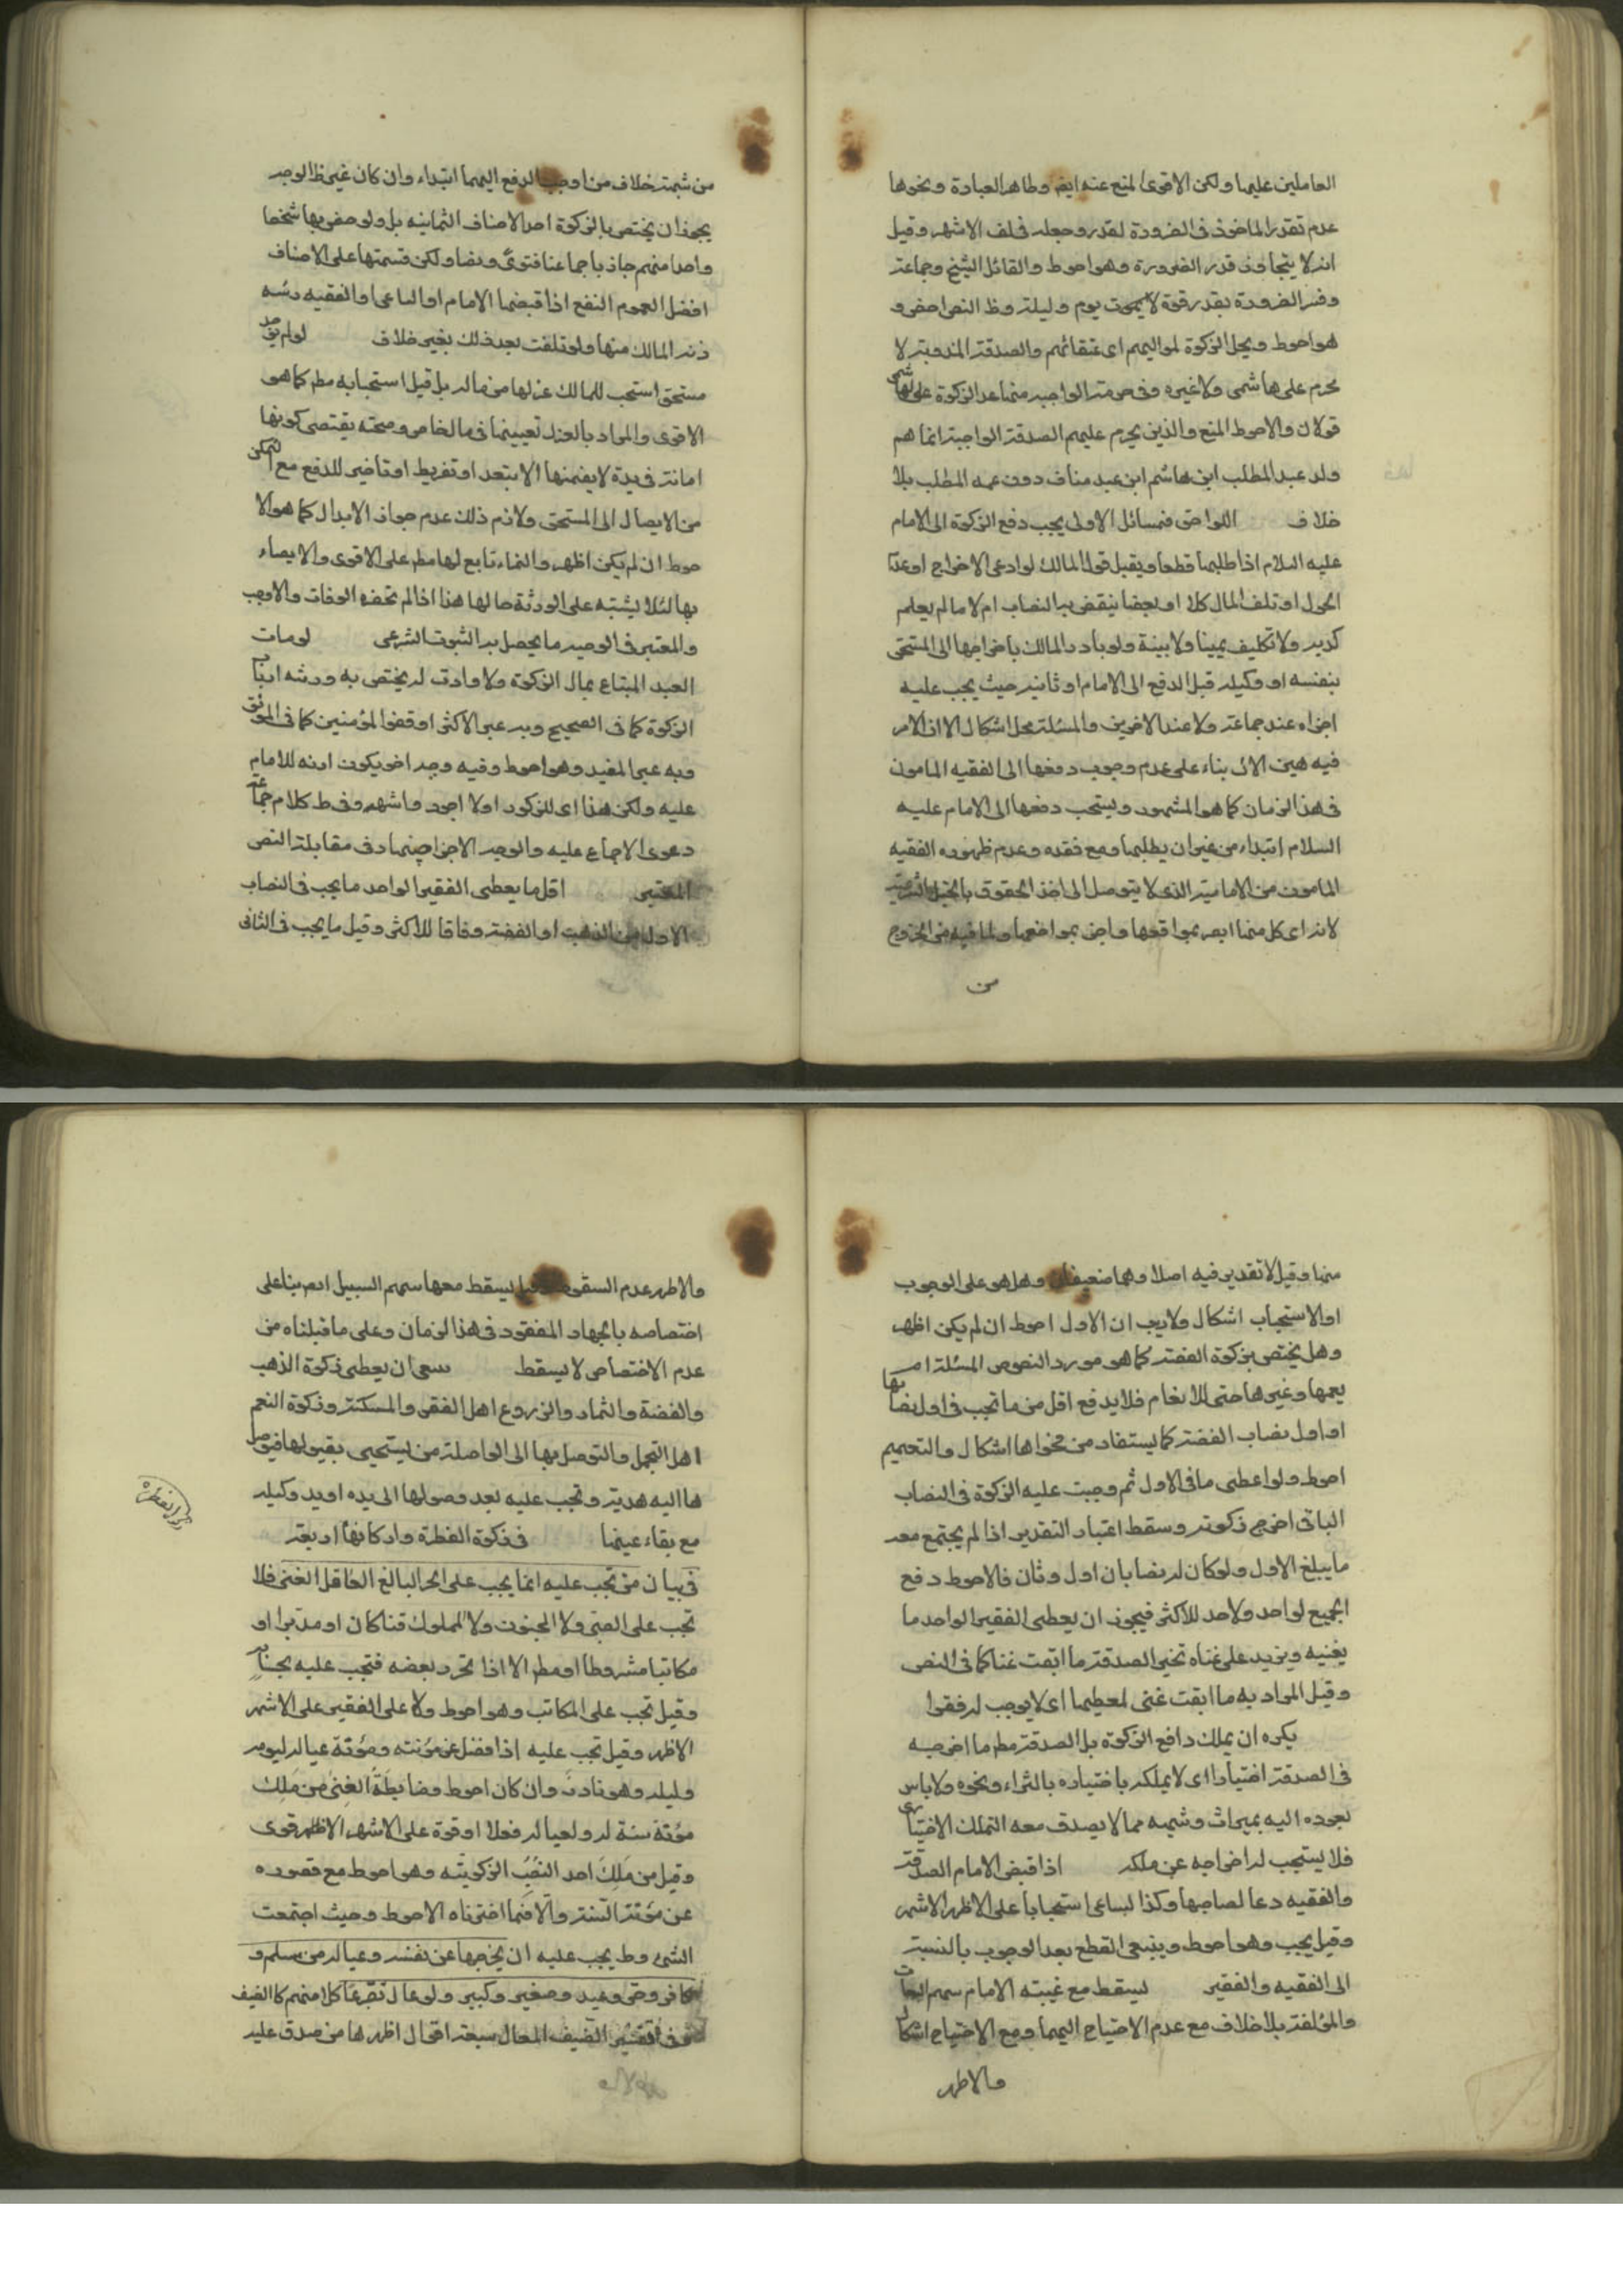 العاملين عليها ولكن الاقوى المنع عنه ايضا وظاهر العبادة ونحوها
عدم تقدر الماخوذ فى الضرورة لقدر وجعله فى لف الاشهر وقيل
انه لا يتجاوز قدر الضرورة وهو احوط والقائل الشيخ وجماعة
وفسر الضرورة بقدر قوة لا يموت يوم وليلة وظ النص اخص و
هو احوط ويحل الزكوة لمواليهم اى عتقائهم والصدقة المندوبة لا
يحرم على هاشمى ولا غيره وفى حرمة الواجبه منها عد الزكوة على الهاشمى
قولان والاحوط المنع والذين يحرم عليهم الصدقة الواجبة انما هم
ولد عبد المطلب ابن هاشم ابن عبد مناف دون عمه المطلب بلا
خلاف اللواحق فمسائل الاولى يجب دفع الزكوة الى الامام
عليه السلام اذا طلبها قطعا ويقبل قول المالك لو ادعى الاخراج او عدم
الحول او تلف المال كلا او بعضا ينقض به النصاب ام لا ما لم يعلم
كذبه ولا تكليف يمينا ولا بينة ولو بادر المالك باخراجها الى المستحق
بنفسه او وكيله قبل الدفع الى الامام او ثانيه حيث يجب عليه
اجزاه عند جماعة ولا عند الاخرين والمسئلة محل اشكال الا ان الامر
فيه هين الان بناء على عدم وجوب دفعها الى الفقيه المامون
فى هذا الزمان كما هو المشهور ويستحب دفعها الى الامام عليه
السلام ابتداء من غير ان يطلبها ومع فقده وعدم ظهوره الفقيه
المامون من الامامية الذى لا يتوصل الى اخذ الحقوق بالحيل الشرعية
لانه اى كل منهما ابصر بمواقعها واخبر بمواضعها ولما فيه من الخروج
من
من شبهة خلاف من اوجب الدفع اليهما ابتداء وان كان غير ظ الوجه
يجوز ان يختص بالزكوة احد الاصناف الثمانيه بل ولو خص بها شخصا
واحدا منهم جاز باجماعنا فتوى ونصا ولكن قسمتها على الاصناف
افضل لعموم النفع اذا قبضها الامام او الساعى او الفقيه برئه
ذمه المالك منها ولو تلفت بعد ذلك بغير خلاف لو لم يوجد
مستحق استحب للمالك عزلها من ماله بل قيل استحبابه مطم كما هو
الاقوى والمراد بالعزل تعيينها فى مال خاص وصحته يقتضى كونها
امانة فى يده لا يضمنها الا بتعد او تفريط او تاخير للدفع مع التمكن
من الايصال الى المستحق ولازم ذلك عدم جواز الابدال كما هو الا
حوط ان لم يكن اظهر والنماء تابع لها مطم على الاقوى والايصاء
بها لئلا يشتبه على الورثة حالها هذا اذا لم تحضره الوفات والا وجب
والمعتبر فى الوصيه ما يحصل به الثبوت الشرعى لو مات
العبد المبتاع بمال الزكوة ولا وارث له يختص به ورثه ارباب
الزكوة كما فى الصحيح وبه عبر الاكثر او قفوا لمؤمنين كما فى الموثق
وبه عبر المفيد وهو احوط وفيه وجه اخر يكون ارثه للامام
عليه ولكن هذا اى للزكوة اولا اجود واشهر وفى ط كلام جماعة
دعوى الاجماع عليه والوجه الاخر اجتهاد فى مقابلة النص
المعتبر اقل ما يعطى الفقير الواحد ما يجب فى النصاب
الاول من الذهب او الفضة وفاقا للاكثر وقيل ما يجب فى الثانى
منها وقيل لا تقدير فيه اصلا وهما ضعيفان وهل هو على الوجوب
او الاستحباب اشكال ولا ريب ان الاول احوط ان لم يكن اظهر
وهل يختص بزكوة الفضة كما هو مورد النصوص المسئلة ام
يعمها وغيرها حتى للانعام فلا يدفع اقل من ما تجب فى اول نصابها
او اول نصاب الفضة كما يستفاد من فحواها اشكال والتعميم
احوط ولو اعطى ما فى الاول ثم وجبت عليه الزكوة فى النصاب
الثانى اخرج زكوته وسقط اعتبار التقدير اذا لم يجتمع معه
ما يبلغ الاول ولو كان له نصابان اول وثان فالاحوط دفع
الجميع لواحد ولا حد للاكثر فيجوز ان يعطى الفقير الواحد ما
يغنيه ويزيد على غناه تخير الصدقة ما ابقت غنا كما فى النص
وقيل المراد به ما ابقت غنى لمعطيها اى لا يوجب له فقرا
يكره ان يملك دافع الزكوة بل الصدقة مطم ما اخرجه
فى الصدقة اختيارا اى لا يملكه باختياره بالشراء ونحوه ولا باس
بعوده اليه بميراث وشبهه مما لا يصدق معه التملك الاختيارى
فلا يستحب له اخراجه عن ملكه اذا قبض الامام الصدقة
والفقيه دعا لصاحبها وكذا لساعى استحبابا على الاظهر الاشهر
وقيل يجب وهو احوط وينبغى القطع بعد الوجوب بالنسبة
الى الفقيه والفقير يسقط مع غيبته الامام سهم السعات
والمؤلفة بلا خلاف مع عدم الاحتياج اليهما ومع الاحتياج اشكال
والاظهر
والاظهر عدم السقوط وقيل يسقط معها سهم السبيل ايضا بناء على
اختصاصه بالجهاد المفقود فى هذا الزمان وعلى ما قبلناه من
عدم الاختصاص لا يسقط ينبغى ان يعطى زكوة الذهب
والفضة والثمار والزروع اهل الفقر والمسكنة وزكوة النعم
اهل التجمل والتوصل بها الى الواصلة من يستحيى بقبولها فيوصل
ها اليه هدية وتجب عليه بعد وصولها الى يده او يد وكيله
مع بقاء عينها فى زكوة الفطرة واركانها اربعة
فى بيان من تجب عليه انما يجب على الحر البالغ العاقل الغنى فلا
تجب على الصبى ولا المجنون ولا المملوك قنا كان او مدبرا او
مكاتبا مشروطا او مطم الا اذا تحرر بعضه فتجب عليه بحسابه
وقيل تجب على المكاتب وهو احوط ولا على الفقير على الاشهر
الاظهر وقيل تجب عليه اذا فضل عن مؤنته ومؤنة عياله ليومه
وليله وهو نادر وان كان احوط وضابطة الغنى من ملك
مؤنة سنة له ولعياله فعلا او قوة على الاشهر الاظهر قوى
وقيل من ملك احد النصب الزكويته وهو احوط مع قصوره
عن مؤنة السنة والا فما اخترناه الاحوط وحيث اجتمعت
الشروط يجب عليه ان يخرجها عن نفسه وعياله من مسلم و
كافر وحر وعبد وصغير وكبير ولو عال تبرعا كلا منهم كالضيف
وفى تفسير الضيف المعال سبعة اقوال اظهرها من صدق عليه
زكوة الفطره